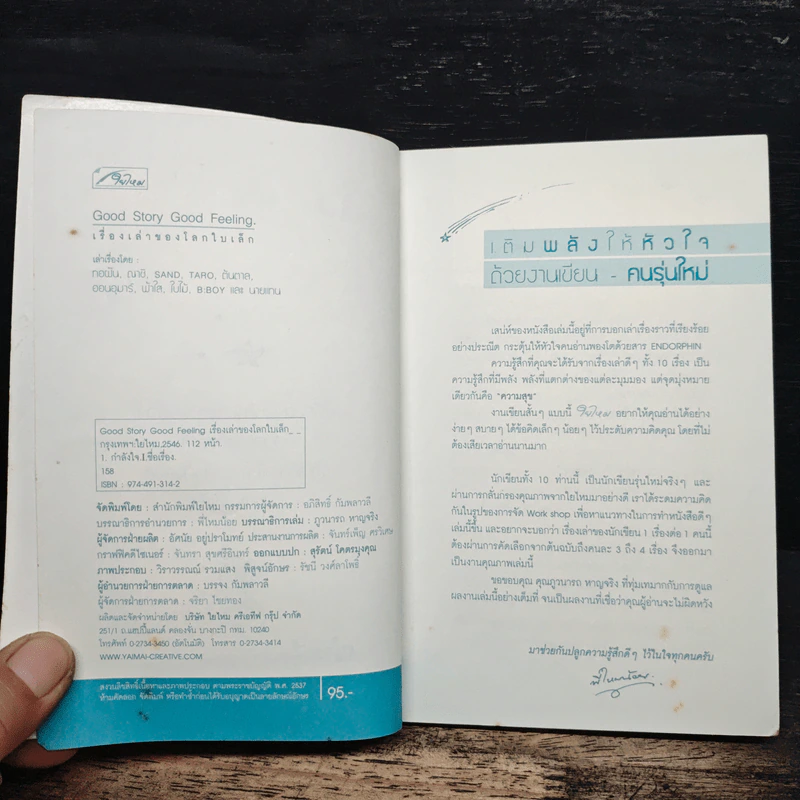 ใยไหม
Good Story Good Feeling.
เรื่องเล่าของโลกใบเล็ก
เล่าเรื่องโดย :
ถอยีน, ณาชิ, SAND, TARO, ต้นตาล,
ออนอุมาร์, ฟ้าใส, ใบไม้, B:BOY และ นายแทน
Good Story Good Feeling เรื่องเล่าของโลกใบเล็ก_ _
กรุงเทพฯ:ใยไหม,2546. 112 หน้า.
1. กำลังใจ.I.ชื่อเรื่อง.
158
ISBN : 974-491-314-2
จัดพิมพ์โดย : สำนักพิมพ์ใยไหม กรรมการผู้จัดการ : อภิสิทธิ์ กัมพลาวลี
บรรณาธิการอำนวยการ : พี่ไหมน้อย บรรณาธิการเล่ม : ภูวนารถ หาญจริง
ผู้จัดการฝ่ายผลิต : อัศนัย อยู่ปราโมทย์ ประสานงานการผลิต : จันทร์เพ็ญ ศรีวิเศษ
กราฟฟิคดีไซเนอร์ : จันทรา สุขศรีอินทร์ ออกแบบปก : สุรัตน์ โคตรมุงคุณ
ภาพประกอบ : วิราวรรณณ์ รวมแสง พิสูจน์อักษร : รัชนี วงค์ลาโพธิ์
ผู้อำนวยการฝ่ายการตลาด : บรรจง กัมพลาวลี
ผู้จัดการฝ่ายการตลาด : จริยา ไชยทอง
ผลิตและจัดจำหน่ายโดย บริษัท ใยไหม ครีเอทีฟ กรุ๊ป จำกัด
251/1 ถ.แฮปปี้แลนด์ คลองจั่น บางกะปิ กทม. 10240
โทรศัพท์ 0-2734-3450 (อัตโนมัติ) โทรสาร 0-2734-3414
WWW.YAIMAI-CREATIVE.COM
สงวนลิขสิทธิ์เนื้อหาและภาพประกอบ ตามพระราชบัญญัติ พ.ศ. 2537
ห้ามคัดลอก จัดพิมพ์ หรือทำซ้ำก่อนได้รับอนุญาตเป็นลายลักษณ์อักษร
95.-
เติมพลังให้หัวใจ
ด้วยงานเขียน - คนรุ่นใหม่
เสน่ห์ของหนังสือเล่มนี้อยู่ที่การบอกเล่าเรื่องราวที่เรียงร้อย
อย่างประณีต กระตุ้นให้หัวใจคนอ่านพองโตด้วยสาร ENDORPHIN
ความรู้สึกที่คุณจะได้รับจากเรื่องเล่าดีๆ ทั้ง 10 เรื่อง เป็น
ความรู้สึกที่มีพลัง พลังที่แตกต่างของแต่ละมุมมอง แต่จุดมุ่งหมาย
เดียวกันคือ "ความสุข"
งานเขียนสั้นๆ แบบนี้ ใยไหม อยากให้คุณอ่านได้อย่าง
ง่ายๆ สบายๆ ได้ข้อคิดเล็กๆ น้อยๆ ไว้ประดับความคิดคุณ โดยที่ไม่
ต้องเสียเวลาอ่านนานมาก
นักเขียนทั้ง 10 ท่านนี้ เป็นนักเขียนรุ่นใหม่จริงๆ และ
ผ่านการกลั่นกรองคุณภาพจากใยไหมมาอย่างดี เราได้ระดมความคิด
กันในรูปของการจัด Work shop เพื่อหาแนวทางในการทำหนังสือดีๆ
เล่มนี้ขึ้น และอยากจะบอกว่า เรื่องเล่าของนักเขียน 1 เรื่องต่อ 1 คนนี้
ต้องผ่านการคัดเลือกจากต้นฉบับถึงคนละ 3 ถึง 4 เรื่อง จึงออกมา
เป็นงานคุณภาพเล่มนี้
ขอขอบคุณ คุณภูวนารถ หาญจริง ที่ทุ่มเทมากกับการดูแล
ผลงานเล่มนี้อย่างเต็มที่ จนเป็นผลงานที่เชื่อว่าคุณผู้อ่านจะไม่ผิดหวัง
มาช่วยกันปลูกความรู้สึกดีๆ ไว้ในใจทุกคนครับ
พี่ไหมน้อย.